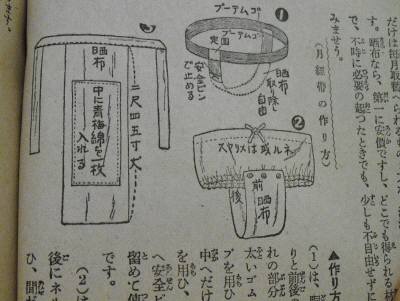 す。晒布なら、第一に安價ですし、どこでも得られる材
で、不時に必要の起つたときでも、少しも不自由せず
みませう。
(月經帶の作り方)
❶
ゴムテープ
ゴムテープ
固定
晒布
取り除し
自由
安全ピン
で止める
❷
ネル或はスリマス
後
前
晒布
二尺四五寸丈
晒布
中に青梅綿を一枚
入れる
▲作り方
(1)は、
りと前後の
れの部分
太いゴム
プを用ひ
中へだけ
を用ひ、
へ安全ピ
留めて使
です。
(2)は
後にネ
ひ、間が